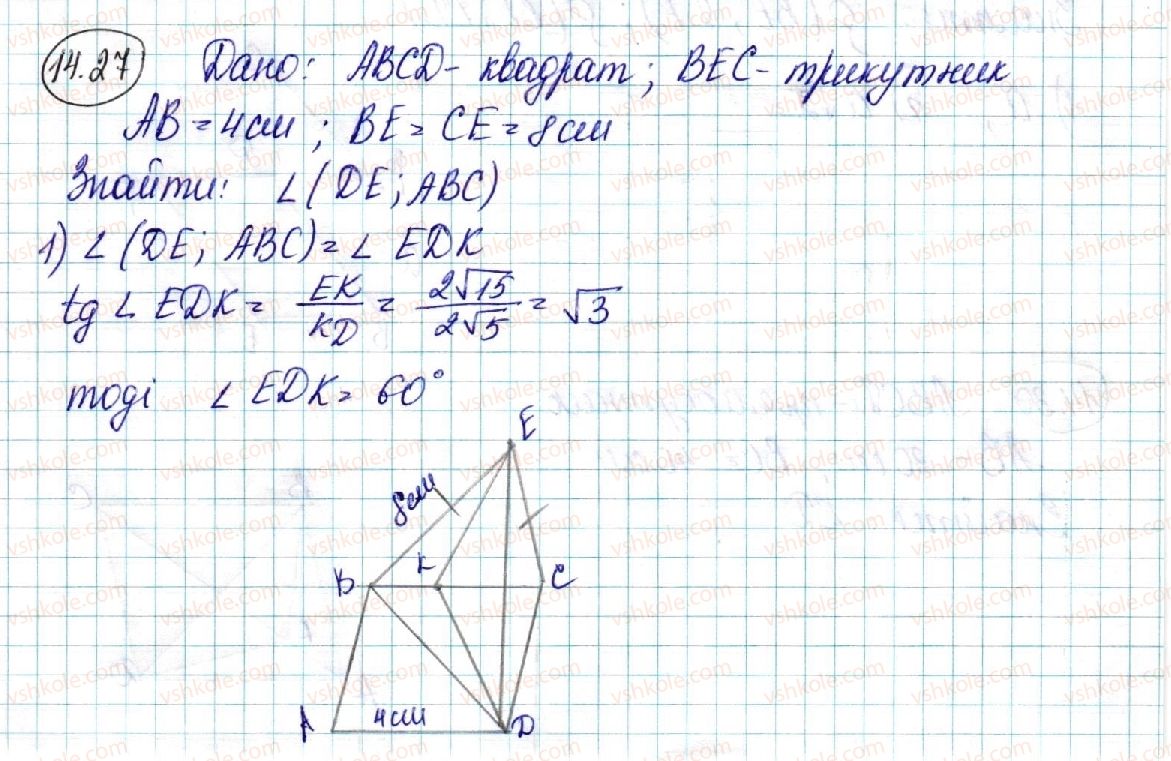 14.27 Дано: ABCD - квадрат; BEC - трикутник
AB = 4см; BE = CE = 8см
Знайти: ∠(DE; ABC)
1) ∠(DE; ABC) = ∠ EDK
tg ∠ EDK = EK/KD = 2√15/2√5 = √3
тоді ∠ EDK = 60°
E
8см
B K C
A 4см D
vshkole.com